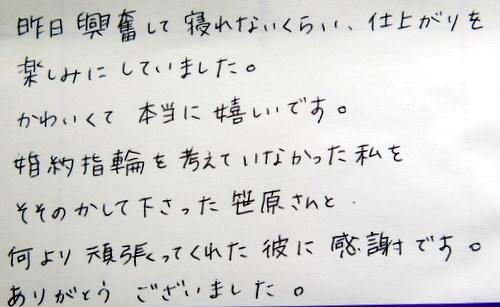 昨日興奮して寝れないくらい、仕上がりを
楽しみにしていました。
かわいくて本当に嬉しいです。
婚約指輪を考えていなかった私を
そそのかして下さった笹原さんと
何より頑張ってくれた彼に感謝です。
ありがとうございました。